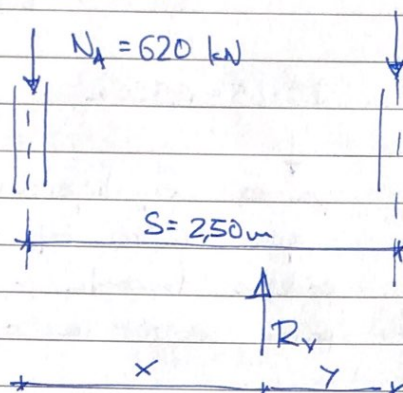 N_A = 620 kN
S = 2,50m
R_v
x y